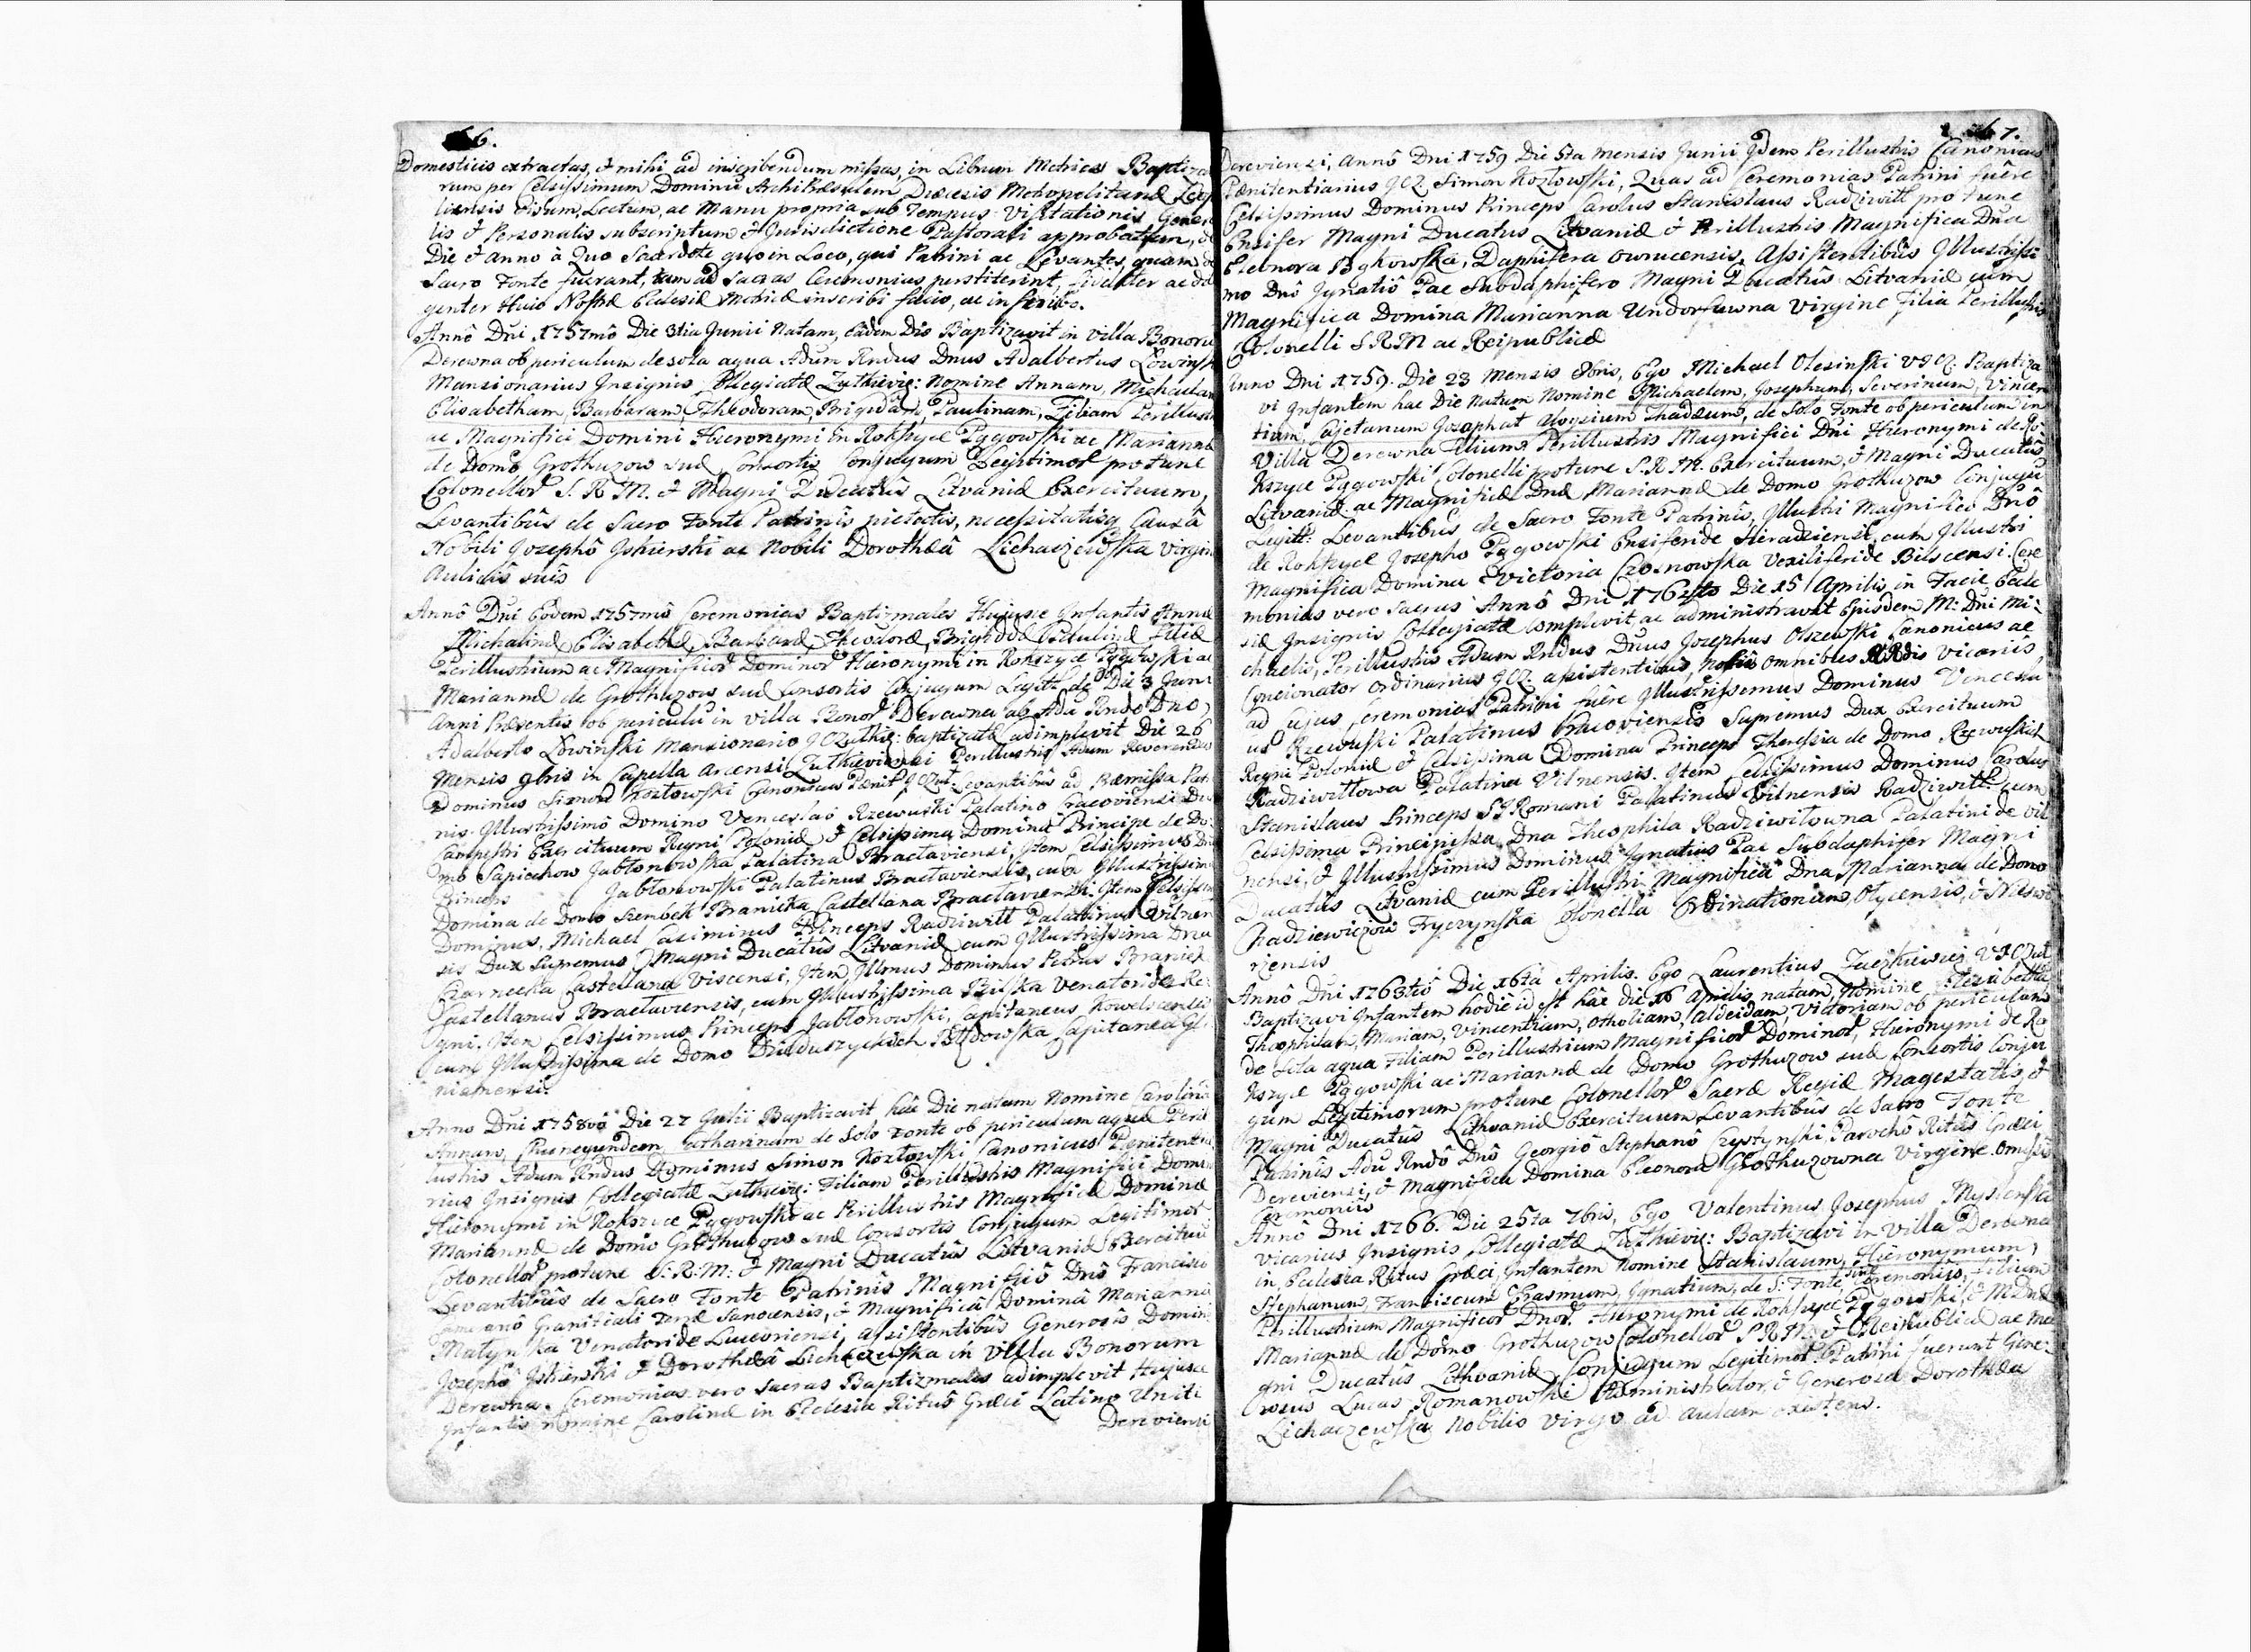 66.
Domesticis extractas, & mihi ad inscribendum missas, in Librum Metrices Baptiza
rum per Celsissimum Dominũ Archi Præsulem Diæcesis Metropolitanæ Leop
liensis visum, Lectum, ac Manu propria sub Tempus Visitationis Genera
lis & Personalis subscriptum & Jurisdictione Pastorali approbatum,
Die & anno à Quo Sacerdote quo in Loco, qui Patrini ac Levantes, quam de
Sacro Fonte fuerant, tam ad Sacras Ceremonias perstiterint, fideliter ac
genter Huic Nostræ Eclesiæ Metricæ inscribi facio, ac inscribo.
Annô Dni 1757mô Die 3tia Junii Natam, eâdem Die Baptizavit in Villa Bonoru
Derewna ob periculum de sola aqua Adum Rndus Dnus Adalbertus Łowinsk
Mansionarius Insignis Collegiatæ Zułkieviẽ: Nomine Annam, Michaelam
Elisabetham, Barbaram, Theodoram, Brigidam, Paulinam, Filiam Perillust
ac Magnifici Domini Hieronymi in Rokszyce Pągowski ac Mariannæ
de Domo Grothuzow suæ Consortis Conjugum Legitimor̃ protunc
Colonellor̃ S. R. M. & Magni Ducatûs Litvaniæ Exercituum,
Levantibûs de Sacro Fonte Patrinis pietatis, necessitatisq̃ Causâ
Nobili Josephô Iskierski ac Nobili Dorotheâ Lichaczewska Virgin
Aulicis suis
Annô Dni Eodem 1757mô Ceremonias Baptizmales Hujusce Infantis Annæ
Michalinæ, Elisabethæ, Barbaræ, Theodoræ, Brigiddæ Paulinæ Filiæ
Perillustrium ac Magnificor̃ Dominor̃ Hieronymi in Rokszyce Pągowski ac
Mariannæ de Grothuzow suæ Consortis Conjugum Legitt: de Die 3 Juni
Anni Præsentis ob periculũ in villa Bonor̃ Derewna ab Adũ Rndo Dno,
Adalberto Łowiński Mansionario I C Zułkiẽ: baptizatæ adimplevit Die 26
Mensis 9bris in Capella Arcensi Zułkieviensi Perillustris Adum Reverendus
Dominus Simon Kozłowski Canonicus Pænit: I C Zuł: Levantibûs ad Præmissa Patri
nis Illustrissimô Domino Venceslaô Rzewuski Palatino Cracoviensi Du
Campestri Exercituum Regni Poloniæ & Celsissima Domina Principe de Do
mo Sapiehow Jabłonowska Palatina Bracłaviensi, Item Celsissimus Dn
Princeps Jabłonowski Palatinus Bracłaviensis, cum Illustrissim
Domina de Domo Szembek Branicka Castellana Bracłaviensi, Item Celsissim
Dominus, Michael Casimirus Princeps Radziwiłł Palatinus Vilnen
sis Dux Supremus Magni Ducatûs Litvaniæ cum Illustrissima Dna
Czarnecka Castellana Viscensi, Item Illmus Dominus Petrus Branick
Castellanus Bracłaviensis, cum Illustrissima Bilska Venatoride Re:
gni. Item Celsissimus Princeps Jabłonowski, Capitaneus Kowelscensis
cum Illustrissima de Domo Dzieduszyckich Bełdowska Capitanea Gl
niamensi.
Anno Dni 1758vo Die 27 Julii Baptizavit hâc Die natam Nomine Carolinâ
Annam, Chunegundem, Catharinam de Solo Fonte ob periculum aquæ Peril
lustris Adum Rndus Dominus Simon Kozłowski Canonicus Pænitentia
rius Insignis Collegiatæ Zułkieviẽ: Filiam Perillustris Magnifici Domini
Hieronymi in Rokszyce Pągowski ac Perillustris Magnificæ Dominæ
Mariannæ de Domo Grothuzow suæ Consortis Conjugum Legitimor̃
Colonellor̃ protunc S: R: M: & Magni Ducatûs Litvaniæ Exercituũ
Levantibûs de Sacro Fonte Patrinis Magnificô Dnô Francisco
Granitiali Terræ Sanocensis, & Magnificâ Dominâ Marianna
Matynska Venatoride Luceoriensi, assistentibûs Generosis Domin
Josephô Iskierski & Dorotheâ Lichaczewska in Villa Bonorum
Derewna. Ceremonias vero Sacras Baptizmales adimplevit Hujusce
Infantis Nomine Carolinæ in Eclesia Ritûs Græci Latino Uniti
Dereviensi
67.
Dereviensi, Annô Dni 1759 Die 5ta Mensis Junii Idem Perillustris Canonicus
Pænitentiarius ICZ. Simon Kozłowski, Quas ad Ceremonias Patrini fuêre
Celsissimus Dominus Princeps Carolus Stanislaus Radziwiłł protunc
Ensifer Magni Ducatus Litvaniæ & Perillustris Magnifica Dna
Eleonora Bykowska, Dapifera Owrucensis, Assistentibûs Illustrissi
mo Dnô Ignatiô Pac Subdaphifero Magni Ducatûs Litvaniæ cum
Magnifica Domina Marianna Undorfawna Virgine Filia Perillustris
Colonelli S R M ac Reipublicæ
Anno Dni 1759. Die 23 Mensis 8bris, Ego Michael Olesinski VICZ. Baptiza
vi Infantem hac Die Natum Nomine Michaelem, Josephum, Severinum, Vincen
tium, Cajetanum Josaphat Aloysium Thadæum, de Solo Fonte ob periculum in
Villa Derewna Filium Perillustris Magnifici Dni Hieronymi de Ro
kszyce Pągowski Colonelli protunc S. R. M. Exercituum, & Magni Ducatûs
Litvaniæ ac Magnificæ Dnæ Mariannæ de Domo Grothuzow Conjugu
Legitt: Levantibûs de Sacro Fonte Patrinis, Illustri Magnifico Dnô
de Rokszyce Josepho Pągowski Ensiferide Siradziensi, cum Illustri
Magnifica Domina Victoria Czosnowska Vexiliferide Belscensi. Cere
monias vero Sacras Annô Dni 1762do Die 15 Aprilis, in Facie Ecle
siæ Insignis Collegiatæ Complevit, ac administravit Ejusdem M: Dni Mi:
chaelis, Perillustris Adum Rndus Dnus Josephus Olszewski Canonicus ac
Concionator Ordinarius ICZ: assistentibus, Nobis Omnibus RRdis Vicariis
ad Cujus Ceremonias Patrini fuêre Illustrissimus Dominus Vencesla
us Rzewuski Palatinus Cracoviensis Supremus Dux Exercituum
Regni Poloniæ & Celsissima Domina Princeps Theressia de Domo Rzewuskich
Radziwiłłowa Palatina Vilnensis. Item Celsissimus Dominus Carolus
Stanislaus Princeps S I Romani Palatinus Vilnensis Radziwiłł cum
Celsissima Principissa Dna Theophila Radziwiłowna Palatini de Vil
nensi, & Illustrissimus Dominus Ignatius Pac Subdaphifer Magni
Ducatûs Litvaniæ cum Perillustri Magnifica Dna Marianna de Domo
Chadziewiczow Fryczynska Colonella Ordinationum Olycensis, & Nieswi
ziensis
Annô Dni 1763tiô Die 16ta Aprilis. Ego Laurentius Zuczkiewicz VICZuł
Baptizavi Infantem hodie id est hâc die 16 Aprilis natam, Nomine Elisabetha
Theophilam, Mariam, Vincentiam, Otholiam, Aldeidam, Victoriam ob periculum
de Sola aqua Filiam Perillustrium Magnificor̃ Dominor̃, Hieronymi de Ro
kszyce Pągowski ac Mariannæ de Domo Grothuzow suæ Consortis Conju
gum Legitimorum protunc Colonellor̃ Sacræ Regiæ Magestatis &
Magni Ducatûs Lithvaniæ Exercituum Levantibûs de Sacro Fonte
Patrinis Adũ Rndô Dnô Georgiô Stephanô Crystynski, Parochô Ritûs Græci
Dereviensi, & Magnifica Domina Eleonora Grothuzowna Virgine. Omissis
Ceremoniis
Annô Dni 1766. Die 25ta 7bris, Ego Valentinus Josephus Myslenski
Vicarius Insignis Collegiatæ Zułkieviẽ: Baptizavi in Villa Derewna
in Eclesia Ritus Græci, Infantem Nomine Stanislaum, Hieronymum,
Stephanum, Franciscum Erasmum, Ignatium, de S: Fonte, sine Ceremoniis, Filium
Perillustrium Magnificor̃ Dnor̃. Hieronymi de Rokszyce Pągowski, & M Dnæ
Mariannæ de Domo Grothuzow Colonellor̃ S R M & Reipublicæ ac Ma
gni Ducatûs Lithvaniæ Conjugum Legitimor̃. Patrini fuerunt Gene:
rosus Lucas Romanowski Administrator, & Generosa Dorothea
Lichaczewska Nobilis Virgo ad Aulam existens.